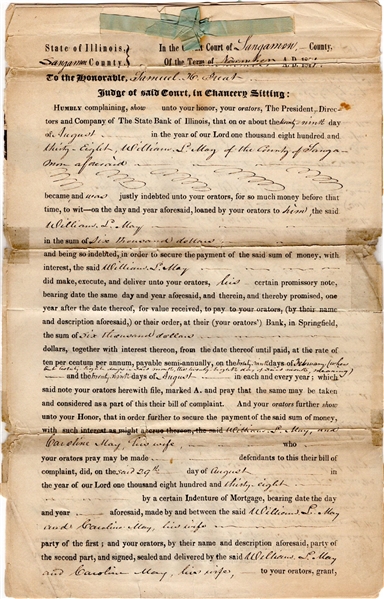 State of Illinois, } In the Circuit Court of Sangamon County.
Sangamon County. } Of the Term of November A.D. 18
To the Honorable, Samuel H. Treat
Judge of said Court, in Chancery Sitting:
HUMBLY complaining, show unto your honor, your orators, The President, Direc-
tors and Company of The State Bank of Illinois, that on or about the twenty ninth day
of August in the year of our Lord one thousand eight hundred and
thirty-Eight, William L. May of the County of Sanga-
mon aforesaid
became and was justly indebted unto your orators, for so much money before that
time, to wit—on the day and year aforesaid, loaned by your orators to him, the said
William L. May
in the sum of Six thousand dollars
and being so indebted, in order to secure the payment of the said sum of money, with
interest, the said William L. May
did make, execute, and deliver unto your orators, his certain promissory note,
bearing date the same day and year aforesaid, and therein, and thereby promised, one
year after the date thereof, for value received, to pay to your orators, (by their name
and description aforesaid,) or their order, at their (your orators') Bank, in Springfield,
the sum of Six thousand dollars
dollars, together with interest thereon, from the date thereof until paid, at the rate of
ten per centum per annum, payable semi-annually, on the twenty ninth days of February (when
that month
and the twenty ninth days of August in each and every year; which
said note your orators herewith file, marked A. and pray that the same may be taken
and considered as a part of this their bill of complaint. And your orators further show
unto your Honor, that in order further to secure the payment of the said sum of money,
with such interest as might accrue thereon, the said William L. May, and
Caroline May, his wife who
your orators pray may be made defendants to this their bill of
complaint, did, on the said 29th day of August in
the year of our Lord one thousand eight hundred and thirty-eight
by a certain Indenture of Mortgage, bearing date the day
and year aforesaid, made by and between the said William L. May
and Caroline May, his wife
party of the first; and your orators, by their name and description aforesaid, party of
the second part, and signed, sealed and delivered by the said William L. May
and Caroline May, his wife, to your orators, grant,